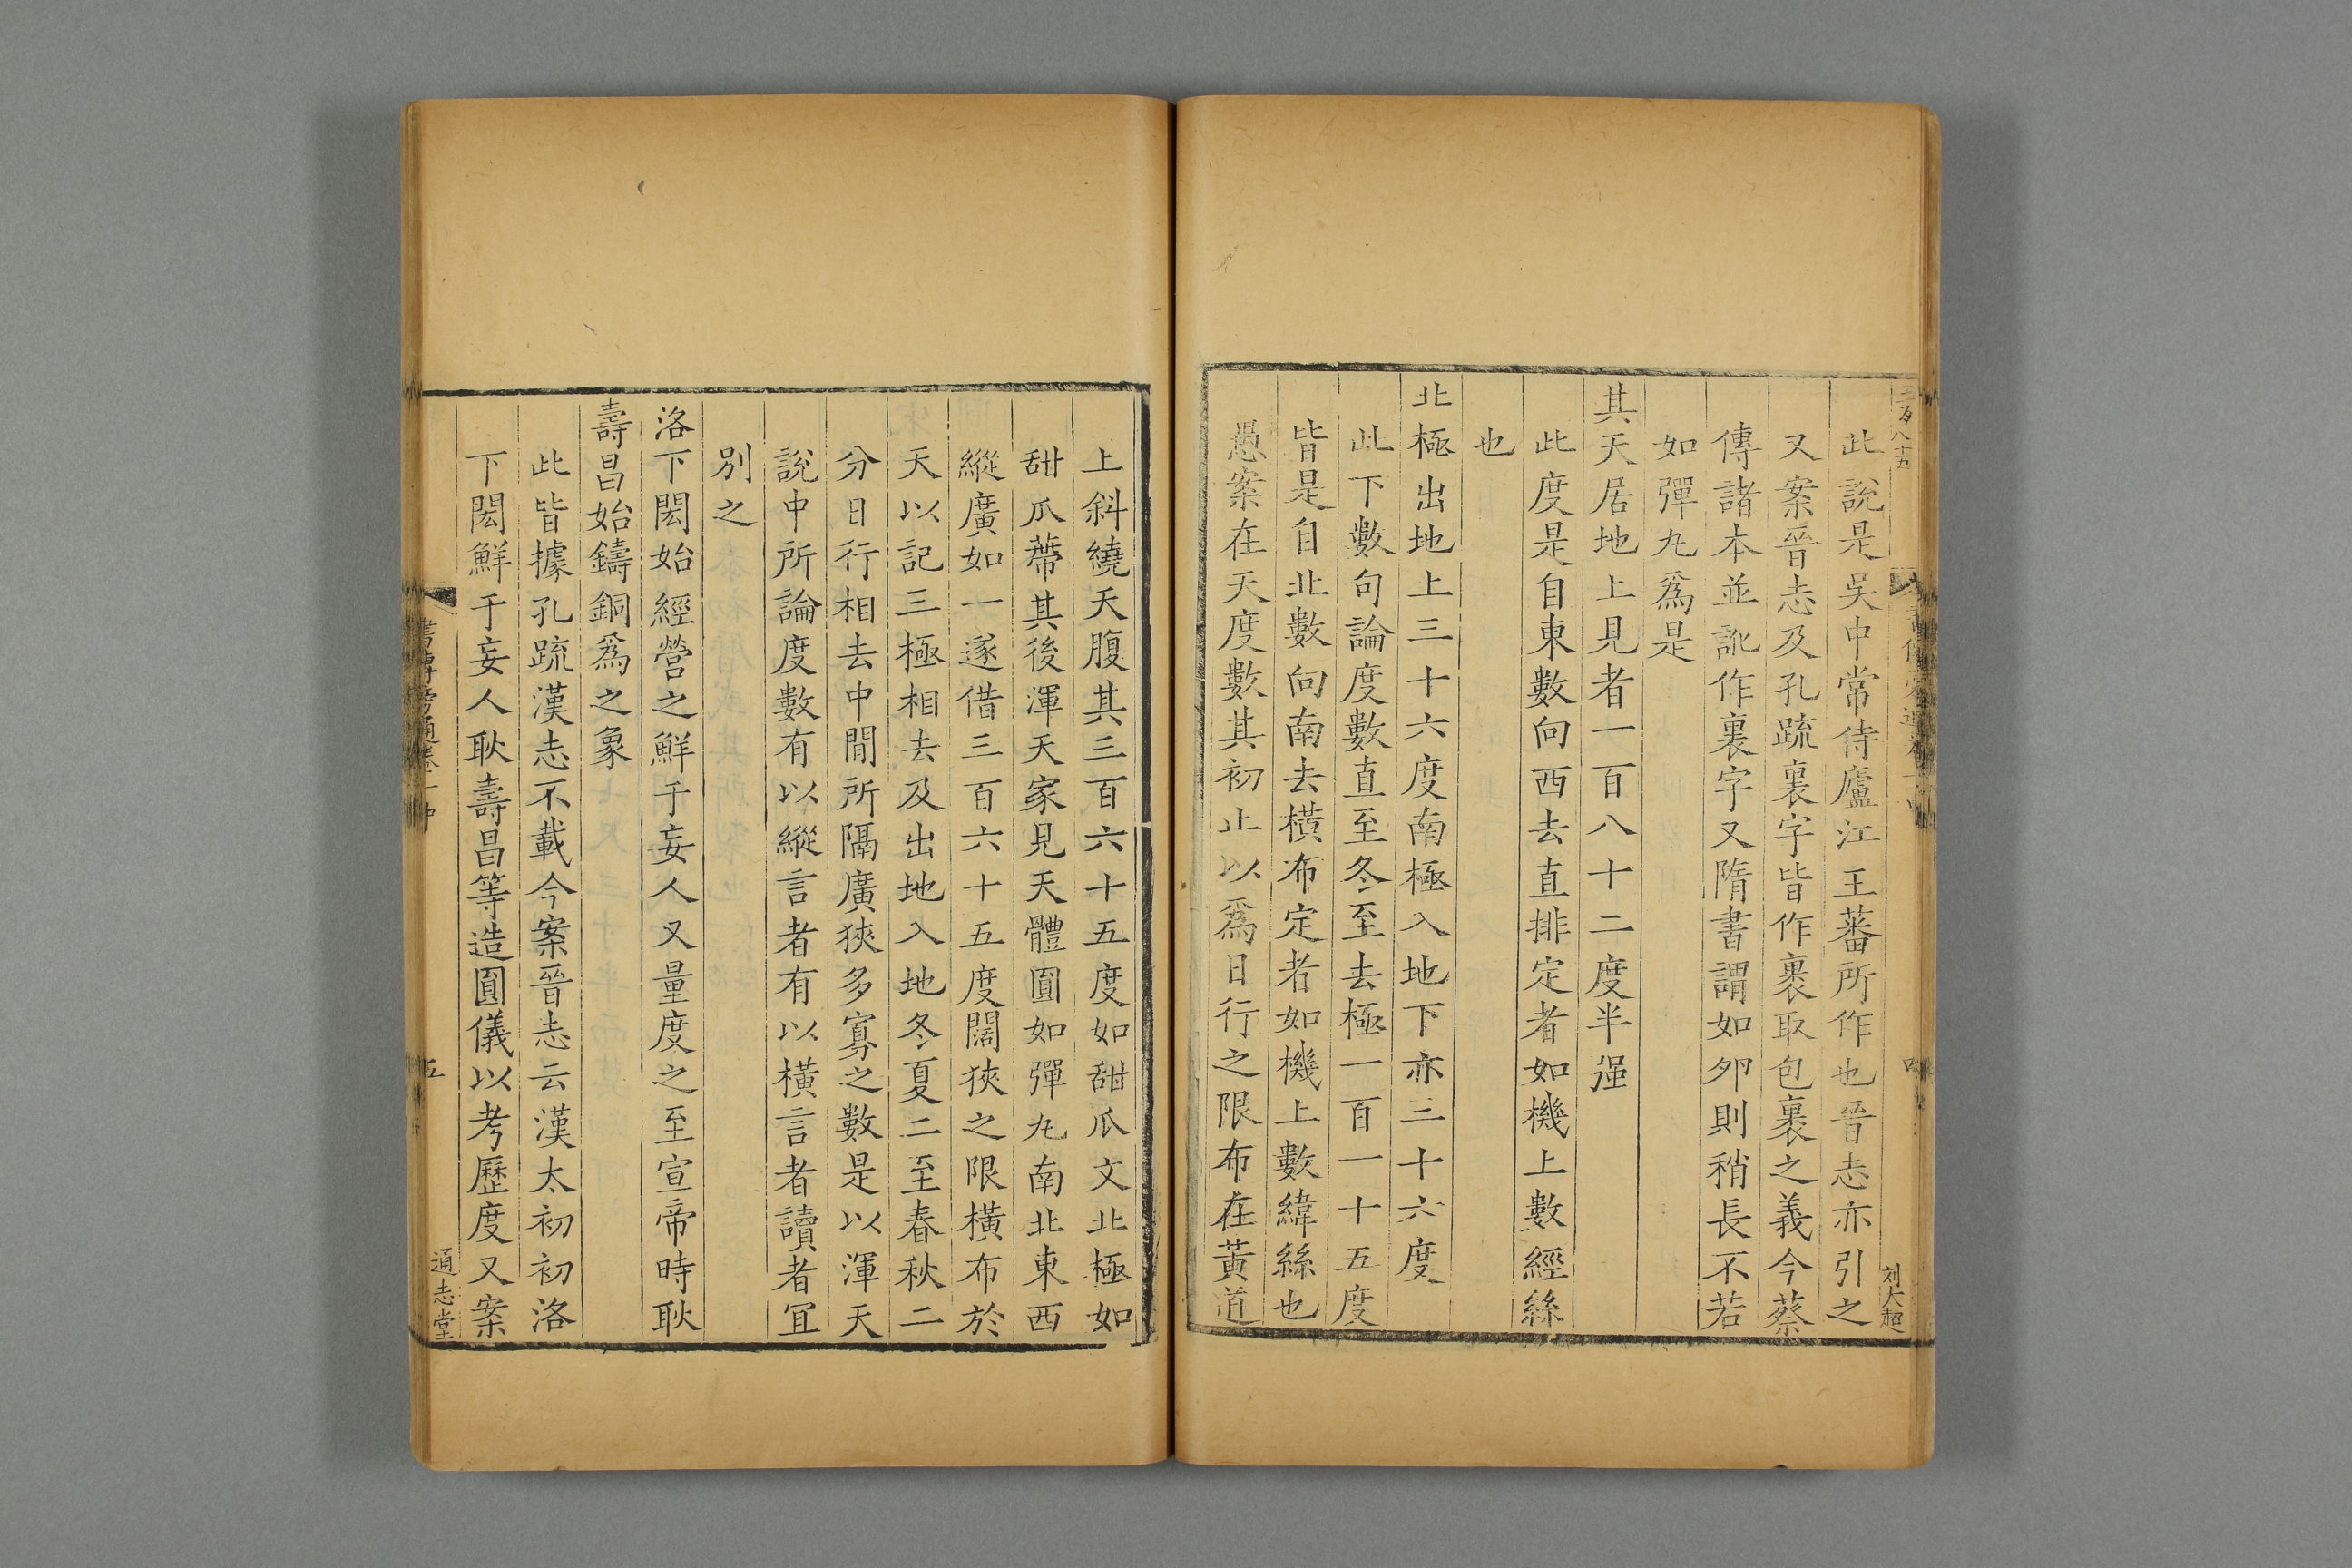 此說是吳中常侍廬江王蕃所作也晉志亦引之
又案晉志及孔疏裏字皆作裹取包裹之義今蔡
傳諸本並訛作裏字又隋書謂如卵則稍長不若
如彈丸爲是
其天居地上見者一百八十二度半强
此度是自東數向西去直排定者如機上數經絲
也
北極出地上三十六度南極入地下亦三十六度
此下數句論度數直至冬至去極一百一十五度
皆是自北數向南去橫布定者如機上數緯絲也
愚案在天度數其初止以爲日行之限布在黃道
刘大超
上斜繞天腹其三百六十五度如甜瓜文北極如
甜瓜蔕其後渾天家見天體圓如彈丸南北東西
縱廣如一遂借三百六十五度闊狹之限橫布於
天以記三極相去及出地入地冬夏二至春秋二
分日行相去中閒所隔廣狹多寡之數是以渾天
說中所論度數有以縱言者有以橫言者讀者冝
別之
洛下閎始經營之鮮于妄人又量度之至宣帝時耿
壽昌始鑄銅爲之象
此皆據孔疏漢志不載今案晉志云漢太初初洛
下閎鮮于妄人耿壽昌等造圓儀以考歷度又案
書傳旁通卷一中
五
通志堂